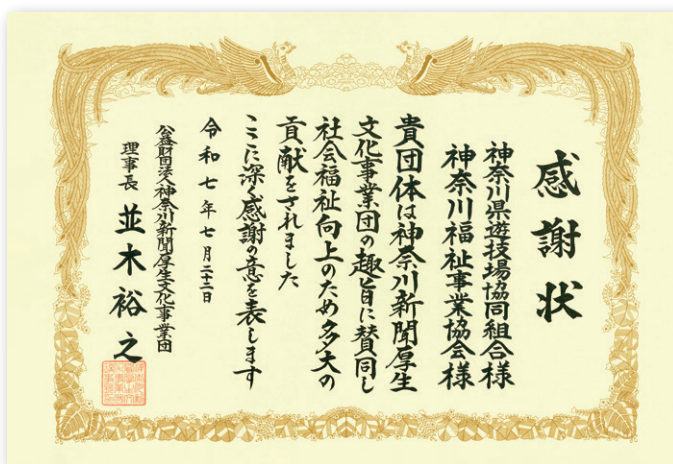 感謝状
神奈川県遊技場協同組合様
神奈川福祉事業協会様
貴団体は神奈川新聞厚生
文化事業団の趣旨に賛同し
社会福祉向上のため多大の
貢献をされました
ここに深く感謝の意を表します
令和七年七月二十二日
公益財団法人神奈川新聞厚生文化事業団
理事長 並木裕之